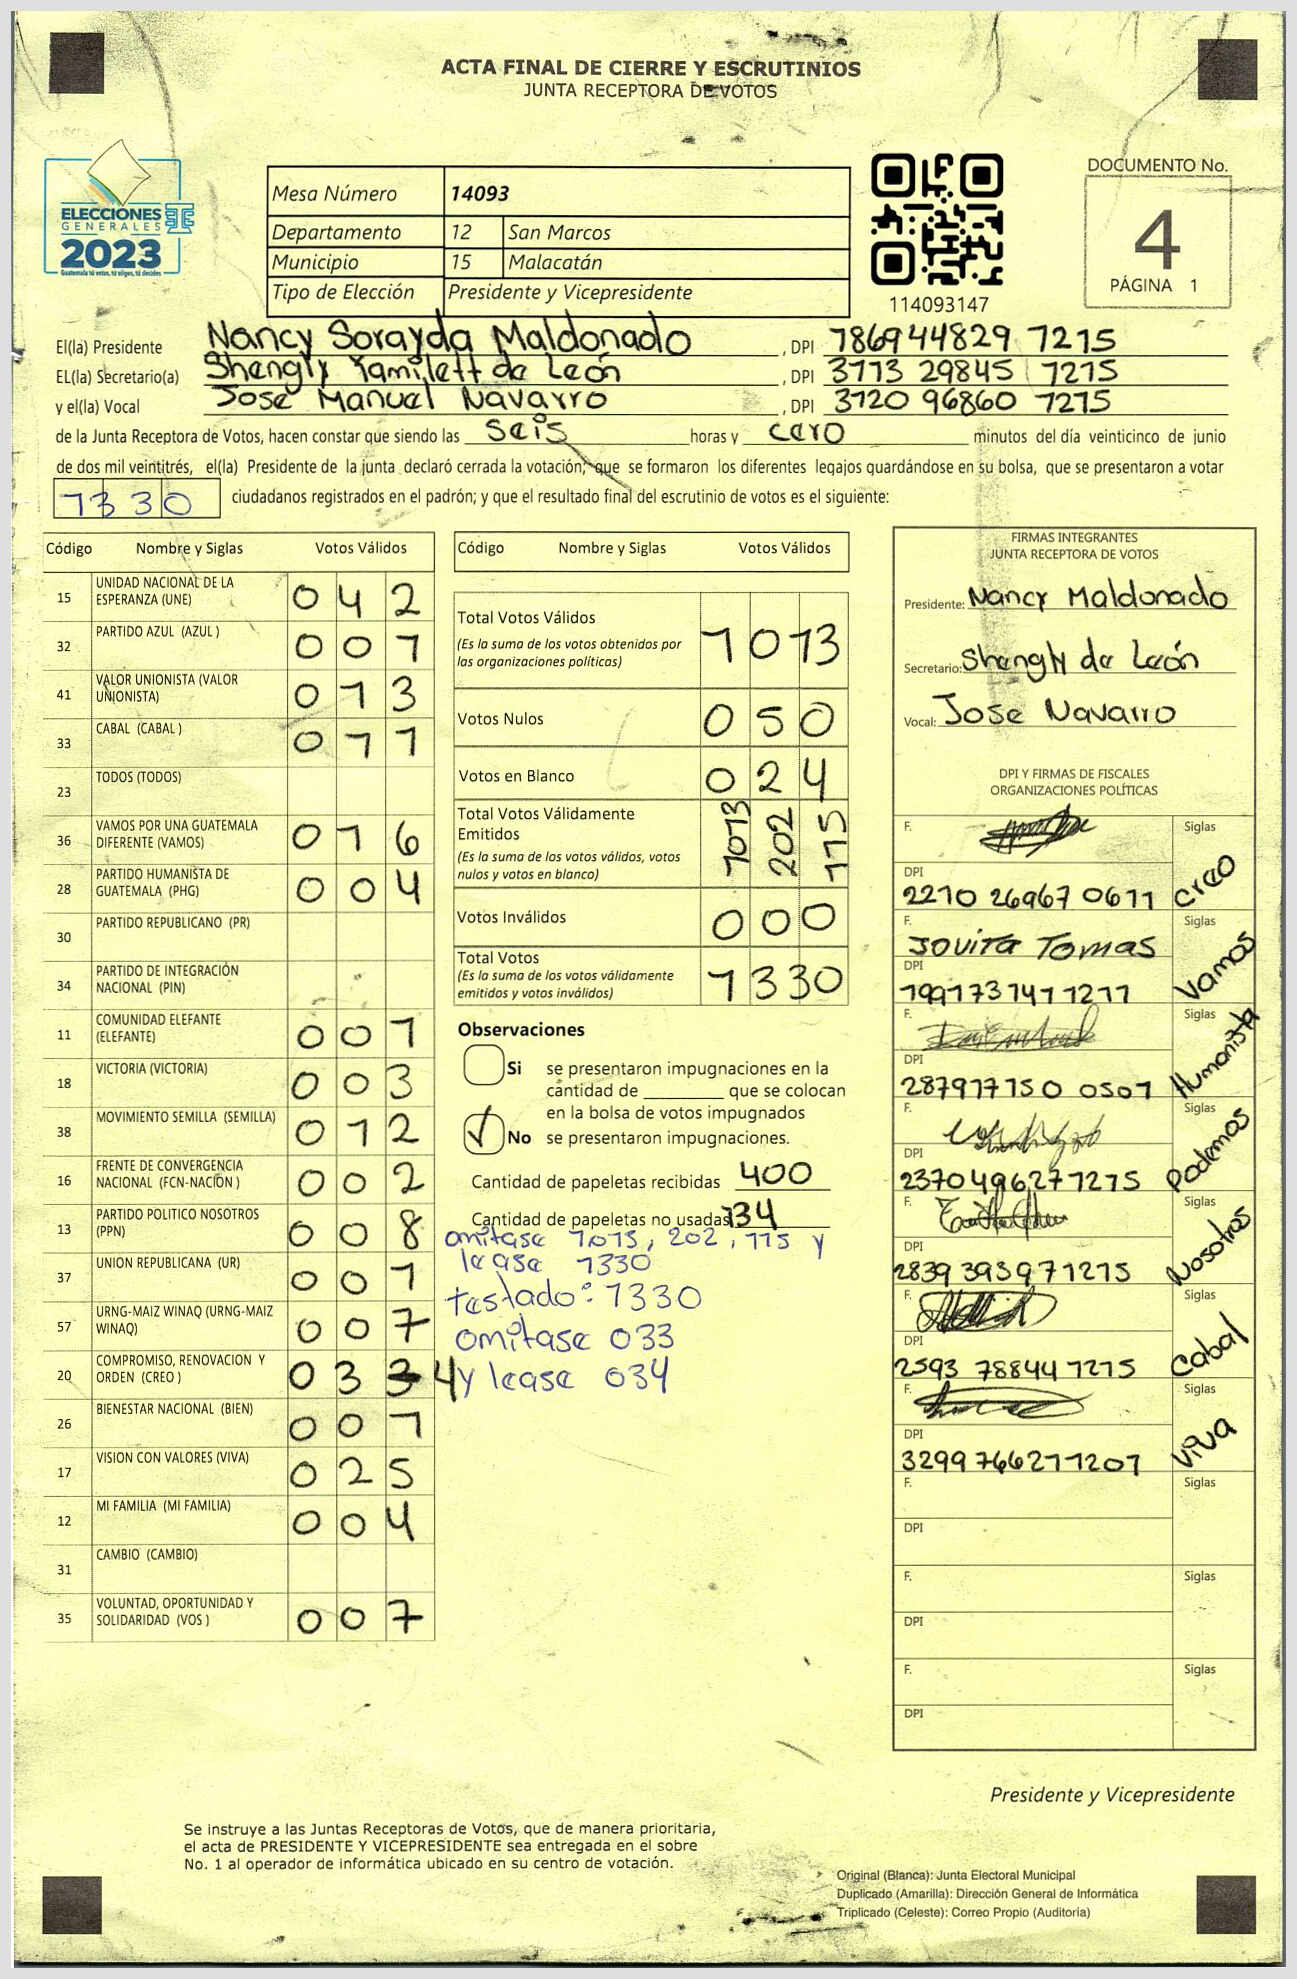 ACTA FINAL DE CIERRE Y ESCRUTINIOS
JUNTA RECEPTORA DE VOTOS
ELECCIONES
GENERALES
2023
Guatemala tú votas, tú eliges, tú decides
Mesa Número 14093
Departamento 12 San Marcos
Municipio 15 Malacatán
Tipo de Elección Presidente y Vicepresidente
114093147
DOCUMENTO No.
4
PÁGINA 1
El(la) Presidente Nancy Sorayda Maldonado , DPI 186944829 1215
EL(la) Secretario(a) Shengly Yamilett de León , DPI 3113 29845 1215
y el(la) Vocal Jose Manuel Navarro , DPI 3120 96860 1215
de la Junta Receptora de Votos, hacen constar que siendo las seis horas y cero minutos del día veinticinco de junio
de dos mil veintitrés, el(la) Presidente de la junta declaró cerrada la votación; que se formaron los diferentes legajos guardándose en su bolsa, que se presentaron a votar
1330 ciudadanos registrados en el padrón; y que el resultado final del escrutinio de votos es el siguiente:
Código Nombre y Siglas Votos Válidos
15 UNIDAD NACIONAL DE LA ESPERANZA (UNE) 042
32 PARTIDO AZUL (AZUL ) 001
41 VALOR UNIONISTA (VALOR UNIONISTA) 013
33 CABAL (CABAL ) 011
23 TODOS (TODOS)
36 VAMOS POR UNA GUATEMALA DIFERENTE (VAMOS) 016
28 PARTIDO HUMANISTA DE GUATEMALA (PHG) 004
30 PARTIDO REPUBLICANO (PR)
34 PARTIDO DE INTEGRACIÓN NACIONAL (PIN)
11 COMUNIDAD ELEFANTE (ELEFANTE) 001
18 VICTORIA (VICTORIA) 003
38 MOVIMIENTO SEMILLA (SEMILLA) 012
16 FRENTE DE CONVERGENCIA NACIONAL (FCN-NACIÓN ) 002
13 PARTIDO POLITICO NOSOTROS (PPN) 008
37 UNION REPUBLICANA (UR) 001
57 URNG-MAIZ WINAQ (URNG-MAIZ WINAQ) 007
20 COMPROMISO, RENOVACION Y ORDEN (CREO ) 033 4
26 BIENESTAR NACIONAL (BIEN) 001
17 VISION CON VALORES (VIVA) 025
12 MI FAMILIA (MI FAMILIA) 004
31 CAMBIO (CAMBIO)
35 VOLUNTAD, OPORTUNIDAD Y SOLIDARIDAD (VOS ) 007
Código Nombre y Siglas Votos Válidos
Total Votos Válidos 1013
(Es la suma de los votos obtenidos por
las organizaciones políticas)
Votos Nulos 050
Votos en Blanco 024
Total Votos Válidamente
Emitidos 1013 202 115
(Es la suma de los votos válidos, votos
nulos y votos en blanco)
Votos Inválidos 000
Total Votos 1330
(Es la suma de los votos válidamente
emitidos y votos inválidos)
Observaciones
Si se presentaron impugnaciones en la
cantidad de ________ que se colocan
en la bolsa de votos impugnados
✓ No se presentaron impugnaciones.
Cantidad de papeletas recibidas 400
Cantidad de papeletas no usadas 134
omitase 1,013, 202, 115 y
lease 1330
testado: 1330
omitase 033
y lease 034
FIRMAS INTEGRANTES
JUNTA RECEPTORA DE VOTOS
Presidente: Nancy Maldonado
Secretario: Shengly de León
Vocal: Jose Navarro
DPI Y FIRMAS DE FISCALES
ORGANIZACIONES POLÍTICAS
F. Siglas
DPI 2210 26967 0611 creo
F. Jovita Tomas Siglas
DPI 1991131411211 Vamos
F. Siglas
DPI 287917150 0501 Humanista
F. Siglas
DPI 2370496271215 Podemos
F. Siglas
DPI 2839 393971215 Nosotros
F. Siglas
DPI 2593 78844 1215 Cabal
F. Siglas
DPI 3299 766271201 Viva
F. Siglas
DPI
F. Siglas
DPI
F. Siglas
DPI
Presidente y Vicepresidente
Se instruye a las Juntas Receptoras de Votos, que de manera prioritaria,
el acta de PRESIDENTE Y VICEPRESIDENTE sea entregada en el sobre
No. 1 al operador de informática ubicado en su centro de votación.
Original (Blanca): Junta Electoral Municipal
Duplicado (Amarilla): Dirección General de Informática
Triplicado (Celeste): Correo Propio (Auditoría)